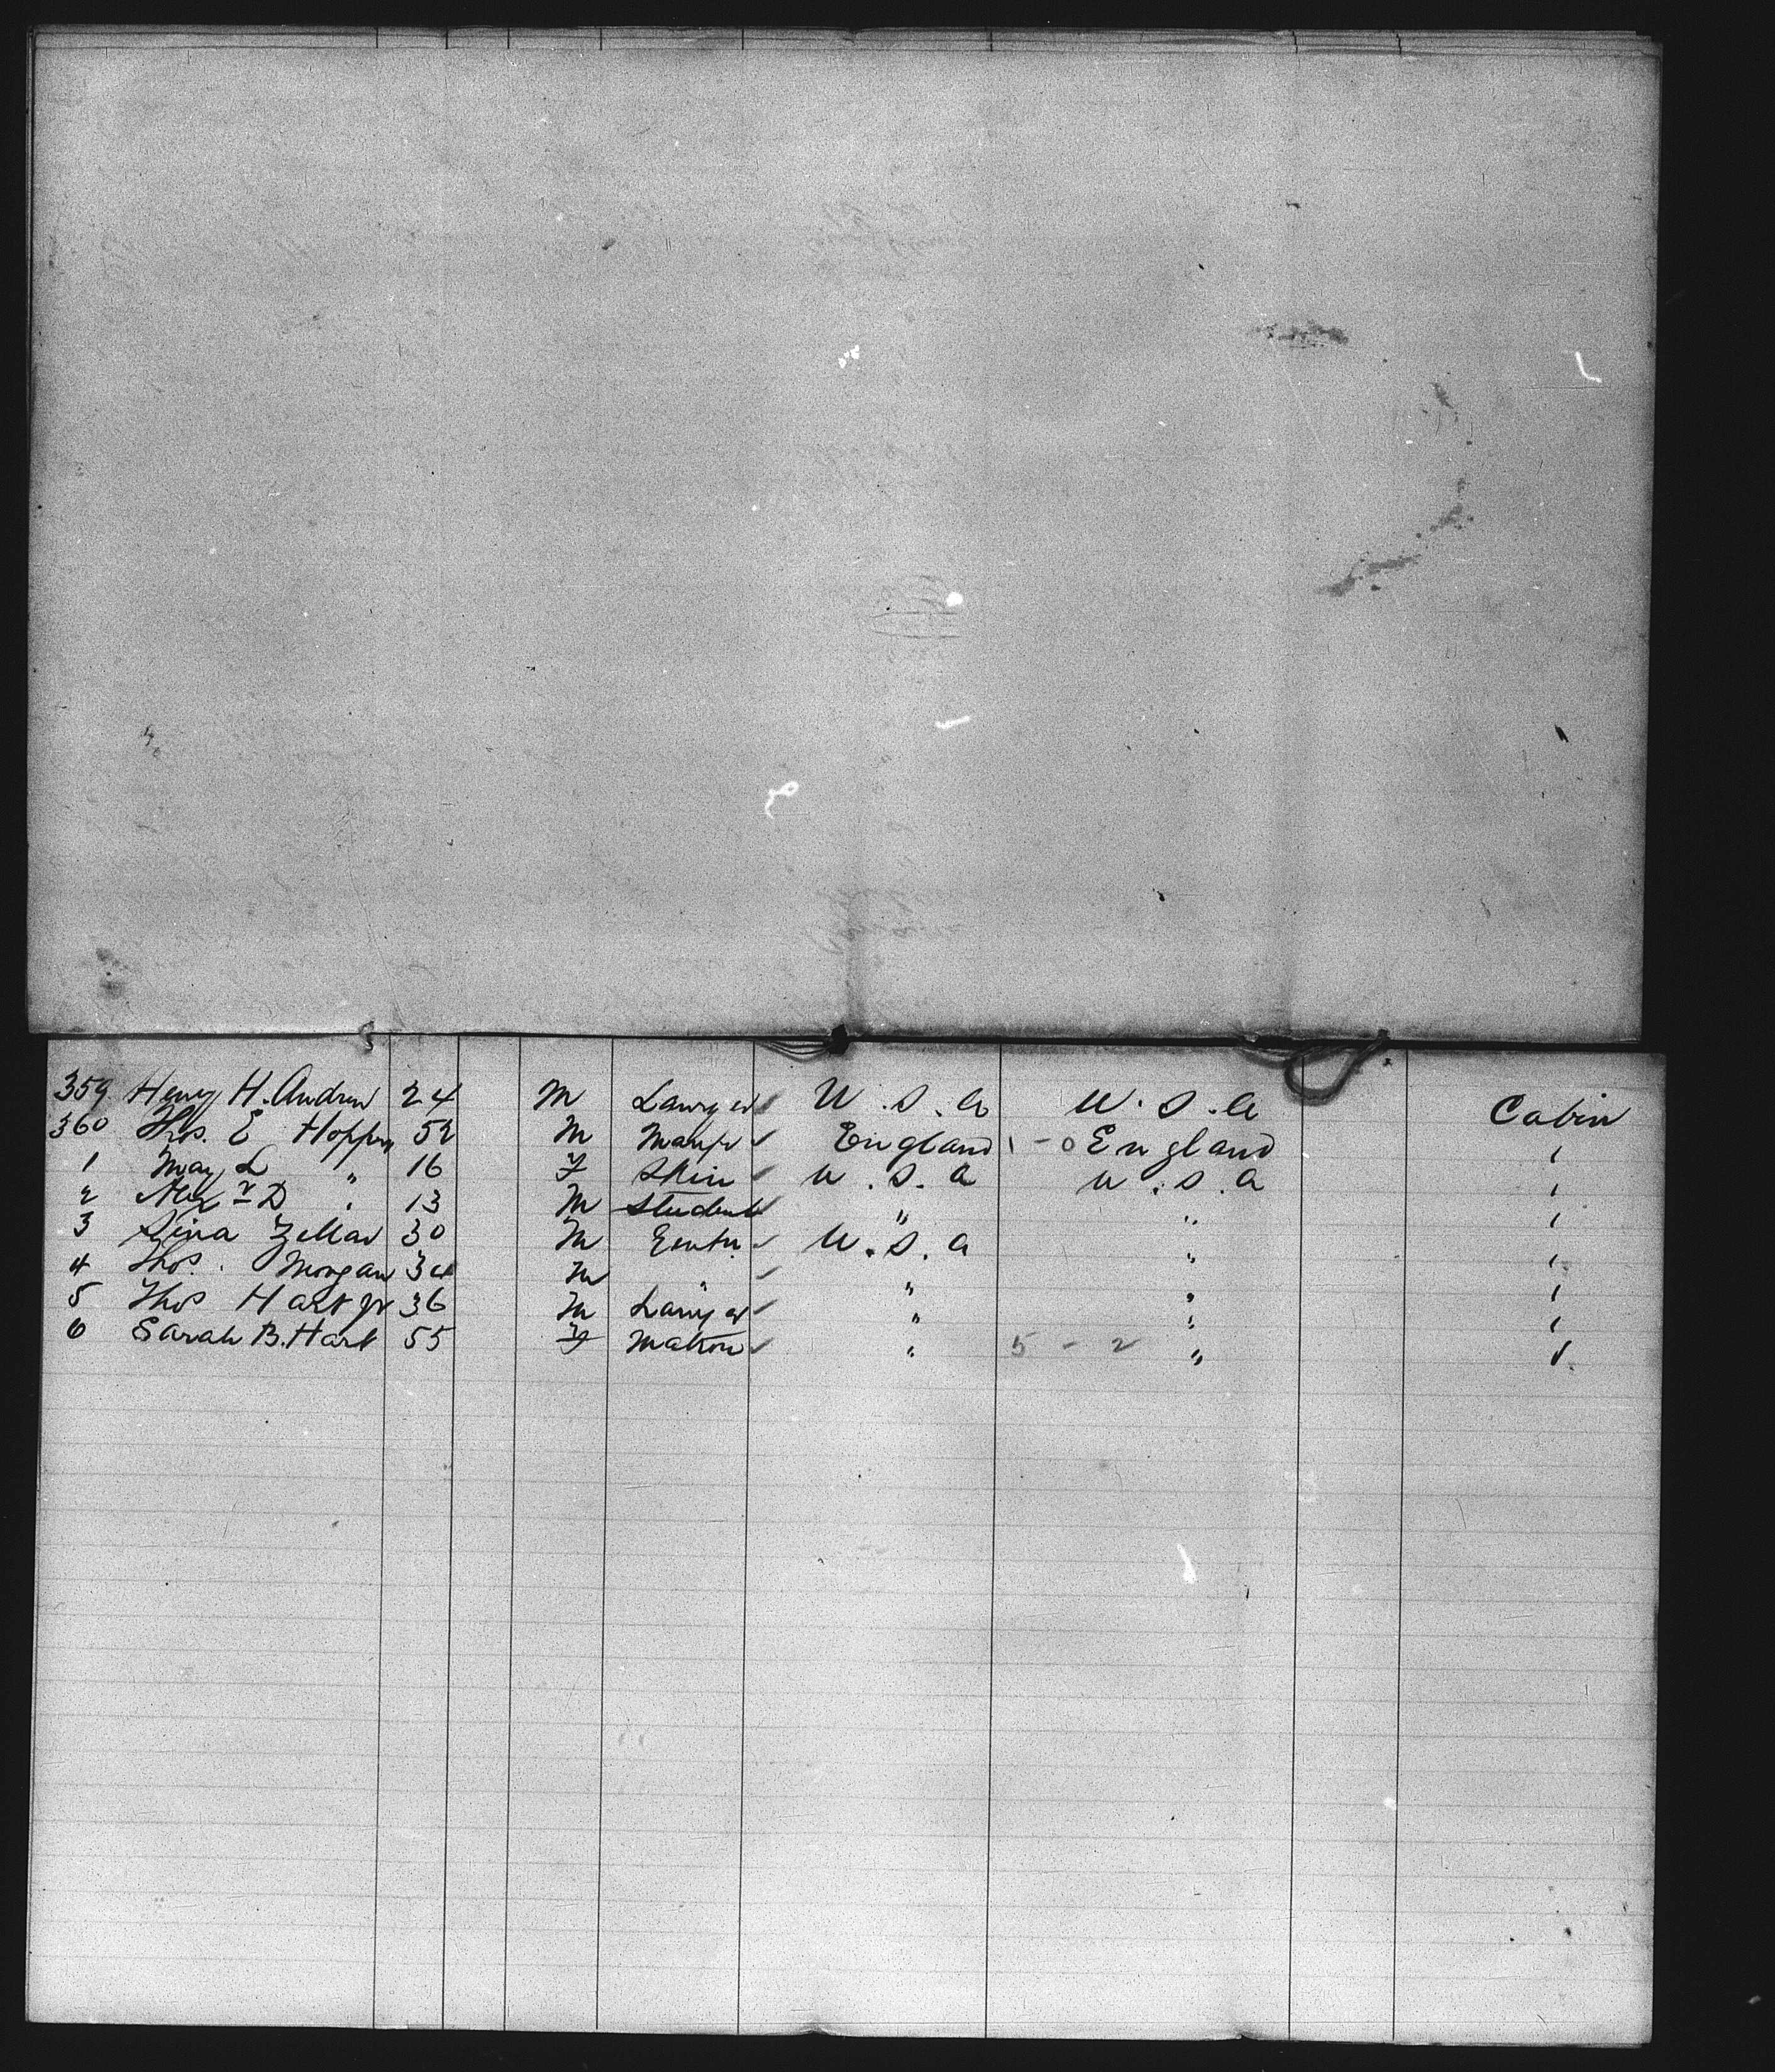 359 Henry H. Andrew 24 M Lawyer U.S.A U.S.A Cabin
360 Thos. E Hopper 52 M Manfr England 1-0 England "
1 May L " 16 F U.S.A U.S.A "
2 Alex r D " 13 M Student " " "
3 Zellar 30 M U.S.A " "
4 Thos. Morgan 34 M " " "
5 Thos Hart Jr 36 M Lawyer " " "
6 Sarah B. Hart 55 F Matron " 5-2 " "